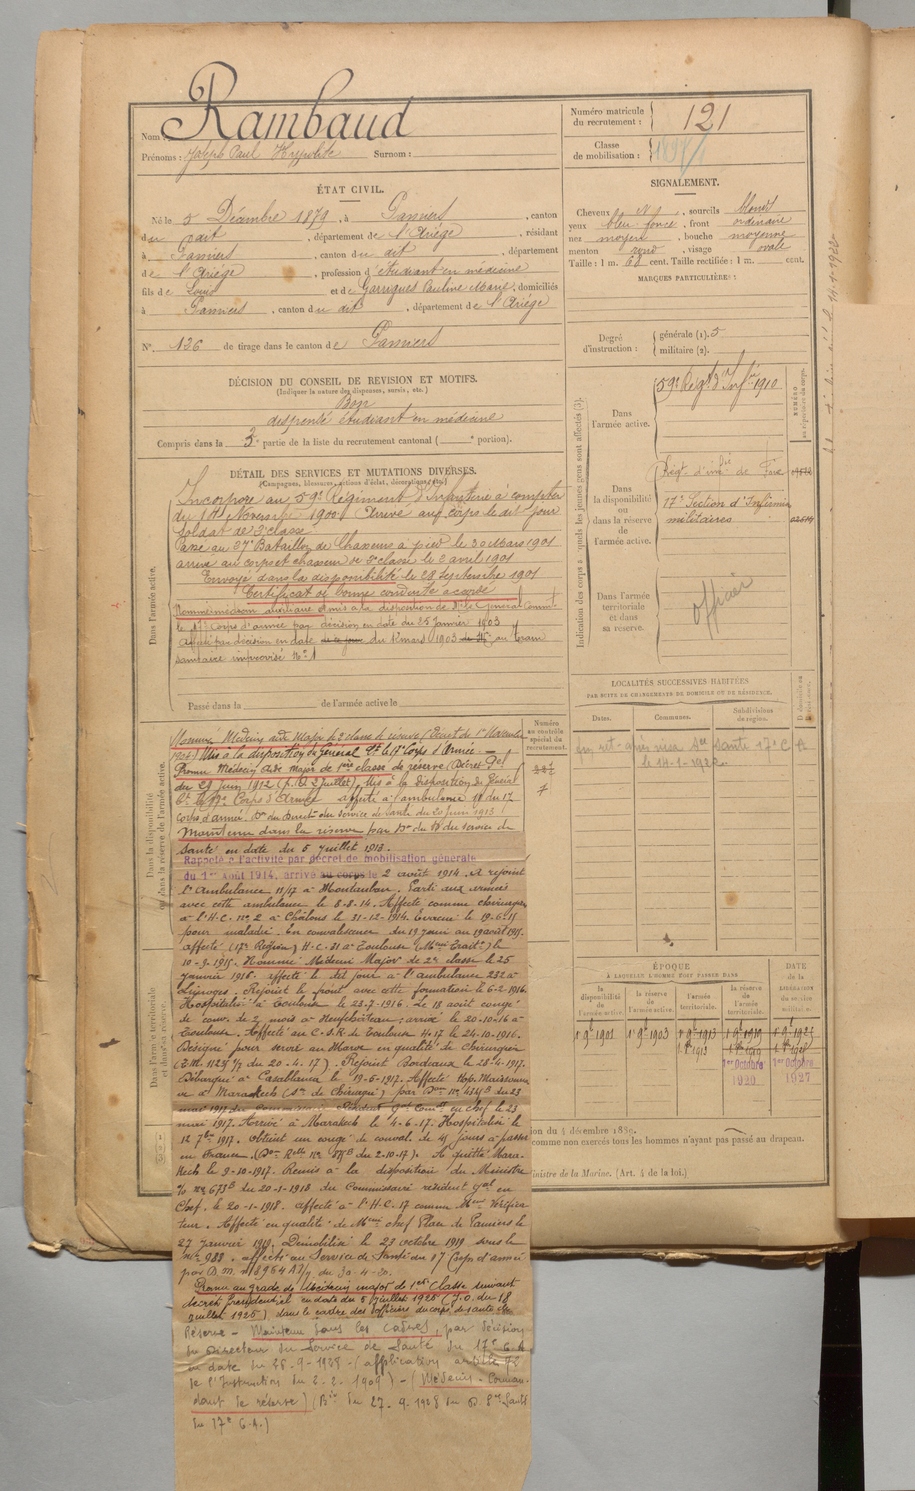 Nom : Rambaud
Prénoms : Joseph Paul Hyppolite Surnom :
Numéro matricule du recrutement : 121
Classe de mobilisation :
ÉTAT CIVIL.
Né le 5 Décembre 1879, à Pamiers, canton
du dit, département de l'Ariège, résidant
à Pamiers, canton du dit, département
de l'Ariège, profession d'étudiant en médecine
fils de Louis et de Garrigues Pauline Marie, domiciliés
à Pamiers, canton du dit, département de l'Ariège
N° 126 de tirage dans le canton de Pamiers
SIGNALEMENT.
Cheveux sourcils blonds
yeux bleu foncé, front ordinaire
nez moyen, bouche moyenne
menton rond, visage ovale
Taille : 1 m. 68 cent. Taille rectifiée : 1 m. cent.
MARQUES PARTICULIÈRES :
Degré d'instruction : générale (1). 5
militaire (2).
DÉCISION DU CONSEIL DE REVISION ET MOTIFS.
(Indiquer la nature des dispenses, sursis, etc.)
Bon
dispensé étudiant en médecine
Compris dans la 3e partie de la liste du recrutement cantonal ( e portion).
DÉTAIL DES SERVICES ET MUTATIONS DIVERSES.
(Campagnes, blessures, actions d'éclat, décorations, etc.)
Dans l'armée active.
Incorporé au 59e Régiment d'Infanterie à compter
du 14 Novembre 1900 Arrivé au corps le dit jour
soldat de 2e classe
Passé au 27e Bataillon de Chasseurs à pied le 30 Mars 1901
arrivé au corps et chasseur de 2e classe le 2 avril 1901
Envoyé dans la disponibilité le 28 Septembre 1901
Certificat de bonne conduite accordé
Nommé médecin auxiliaire et mis à la disposition de Mr le Général Commt
le 17e Corps d'armée par décision en date du 25 janvier 1903
Affecté par décision en date du 1er mars 1903 au train
sanitaire improvisé No 1
Passé dans la de l'armée active le
Indication des corps auxquels les jeunes gens sont affectés (3).
Dans l'armée active.
59e Régt d'Infie 1910
Dans la disponibilité ou dans la réserve de l'armée active.
Régt d'infie de Foix
17e Section d'Infirmiers
militaires
Dans l'armée territoriale et dans sa réserve.
officier
NUMÉRO au répertoire du corps.
LOCALITÉS SUCCESSIVES HABITÉES
PAR SUITE DE CHANGEMENTS DE DOMICILE OU DE RÉSIDENCE.
Dates. Communes. Subdivisions de région.
Numéro au contrôle spécial du recrutement.
Dans la disponibilité ou dans la réserve de l'armée active.
Nommé Médecin aide Major de 2e classe de réserve (Décret du 1er Novembre
Mis à la disposition du Général Ct le 17e Corps d'Armée. —
Promu Médecin Aide Major de 1ère classe de réserve (Décret Pel
du 29 juin 1912 (J.O. 2 juillet), Mis à la disposition du Général
Ct le 17e Corps d'Armée affecté à l'ambulance 11 du 17e
Corps d'armée. Don du Direct. du service de santé du 20 juin 1913
Maintenu dans la réserve par Don du Dr du service de
santé en date du 5 juillet 1913.
Rappelé à l'activité par décret de mobilisation générale
du 1er Août 1914, arrivé au corps le 2 août 1914. A rejoint
l'ambulance 11/17 à Montauban. Parti aux armées
avec cette ambulance le 8-8-14. Affecté comme chirurgien
à l'H.C. no 2 à Châlons le 31-12-1914. Evacué le 19-6-15
pour maladie. En convalescence du 19 juin au 19 août 1915.
affecté (17e Région) H.C. 31 à Toulouse (Mcin Traitt) le
10-9-1915. Nommé Médecin Major de 2e classe le 25
janvier 1916. affecté le dit jour à l'ambulance 232 à
Limoges. Rejoint le front avec cette formation le 6-2-1916.
Hospitalisé à Toulouse le 23-7-1916. Le 18 août congé
de conv. de 2 mois à Neufchâteau ; arrivé le 20-10-16 à
Toulouse. Affecté au C.S.R. de Toulouse le 24-10-1916.
Désigné pour servir au Maroc en qualité de Chirurgien
(E.M. 1129 1/7 du 20-4-17). Rejoint Bordeaux le 28-4-1917.
Débarqué à Casablanca le 19-5-1917. Affecté Hop. Maisonneu
ve à Marakech (Sce de Chirurgie) par Don no du 23
mai 1917 du Commissaire Résident Gal Comdt en chef le 23
mai 1917. Arrivé à Marakech le 4-6-17. Hospitalisé le
12 7bre 1917. Obtient un congé de conval. de 45 jours à passer
en France du 2-10-17). A quitté Mara-
kech le 9-10-1917. Remis à la disposition du Ministre
No 673B du 20-1-1918 du Commissaire résident gal en
Chef. le 20-1-1918. affecté à l'H.C. 17 comme Mcin Vérifica
teur. Affecté en qualité de Mcin chef Place de Pamiers le
27 janvier 1919. Démobilisé le 23 octobre 1919 sous le
no 988. affecté au Service de Santé du 17 Corps d'armée
par D.M. no 8964 A7/7 du 30-4-20.
Promu au grade de Médecin major de 1ère Classe suivant
décret présidentiel en date du 5 juillet 1925 (J.O. du 18
juillet 1925), dans le cadre des officiers du corps de santé de
Réserve – Maintenu dans les cadres, par décision
du Directeur du Service de Santé du 17e C.A
en date du 26-9-1928 – (application article
de l'Instruction du 2-2-1909) – (Médecin-Comman
dant de réserve) (Don du 27-9-1928 du D. Sce Santé
du 17e C.A.)
Dans l'armée territoriale et dans sa réserve.
ÉPOQUE
À LAQUELLE L'HOMME DOIT PASSER DANS
la disponibilité de l'armée active.
la réserve de l'armée active.
l'armée territoriale.
la réserve de l'armée territoriale.
DATE de la LIBÉRATION du service militaire.
1er 9bre 1901 1er 9bre 1903
1er Octobre 1920
1er Octobre 1927
comme non exercés tous les hommes n'ayant pas passé au drapeau.
inistre de la Marine. (Art. 4 de la loi.)